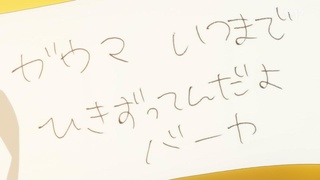 ガウマ いつまで
ひきずってんだよ
バーカ